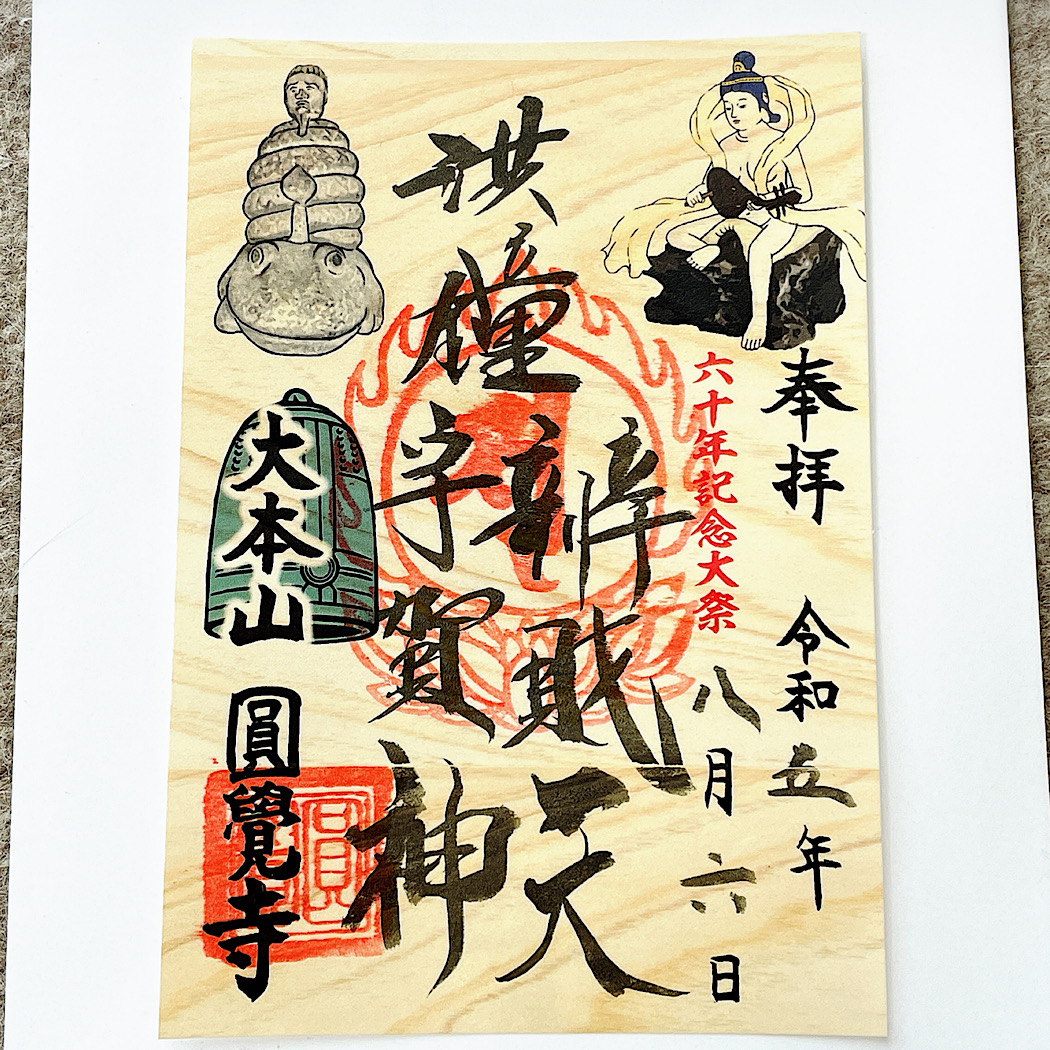 奉拝
令和五年
八月六日
六十年記念大祭
洪鐘
辨財天
宇賀神
大本山
圓覺寺
圓